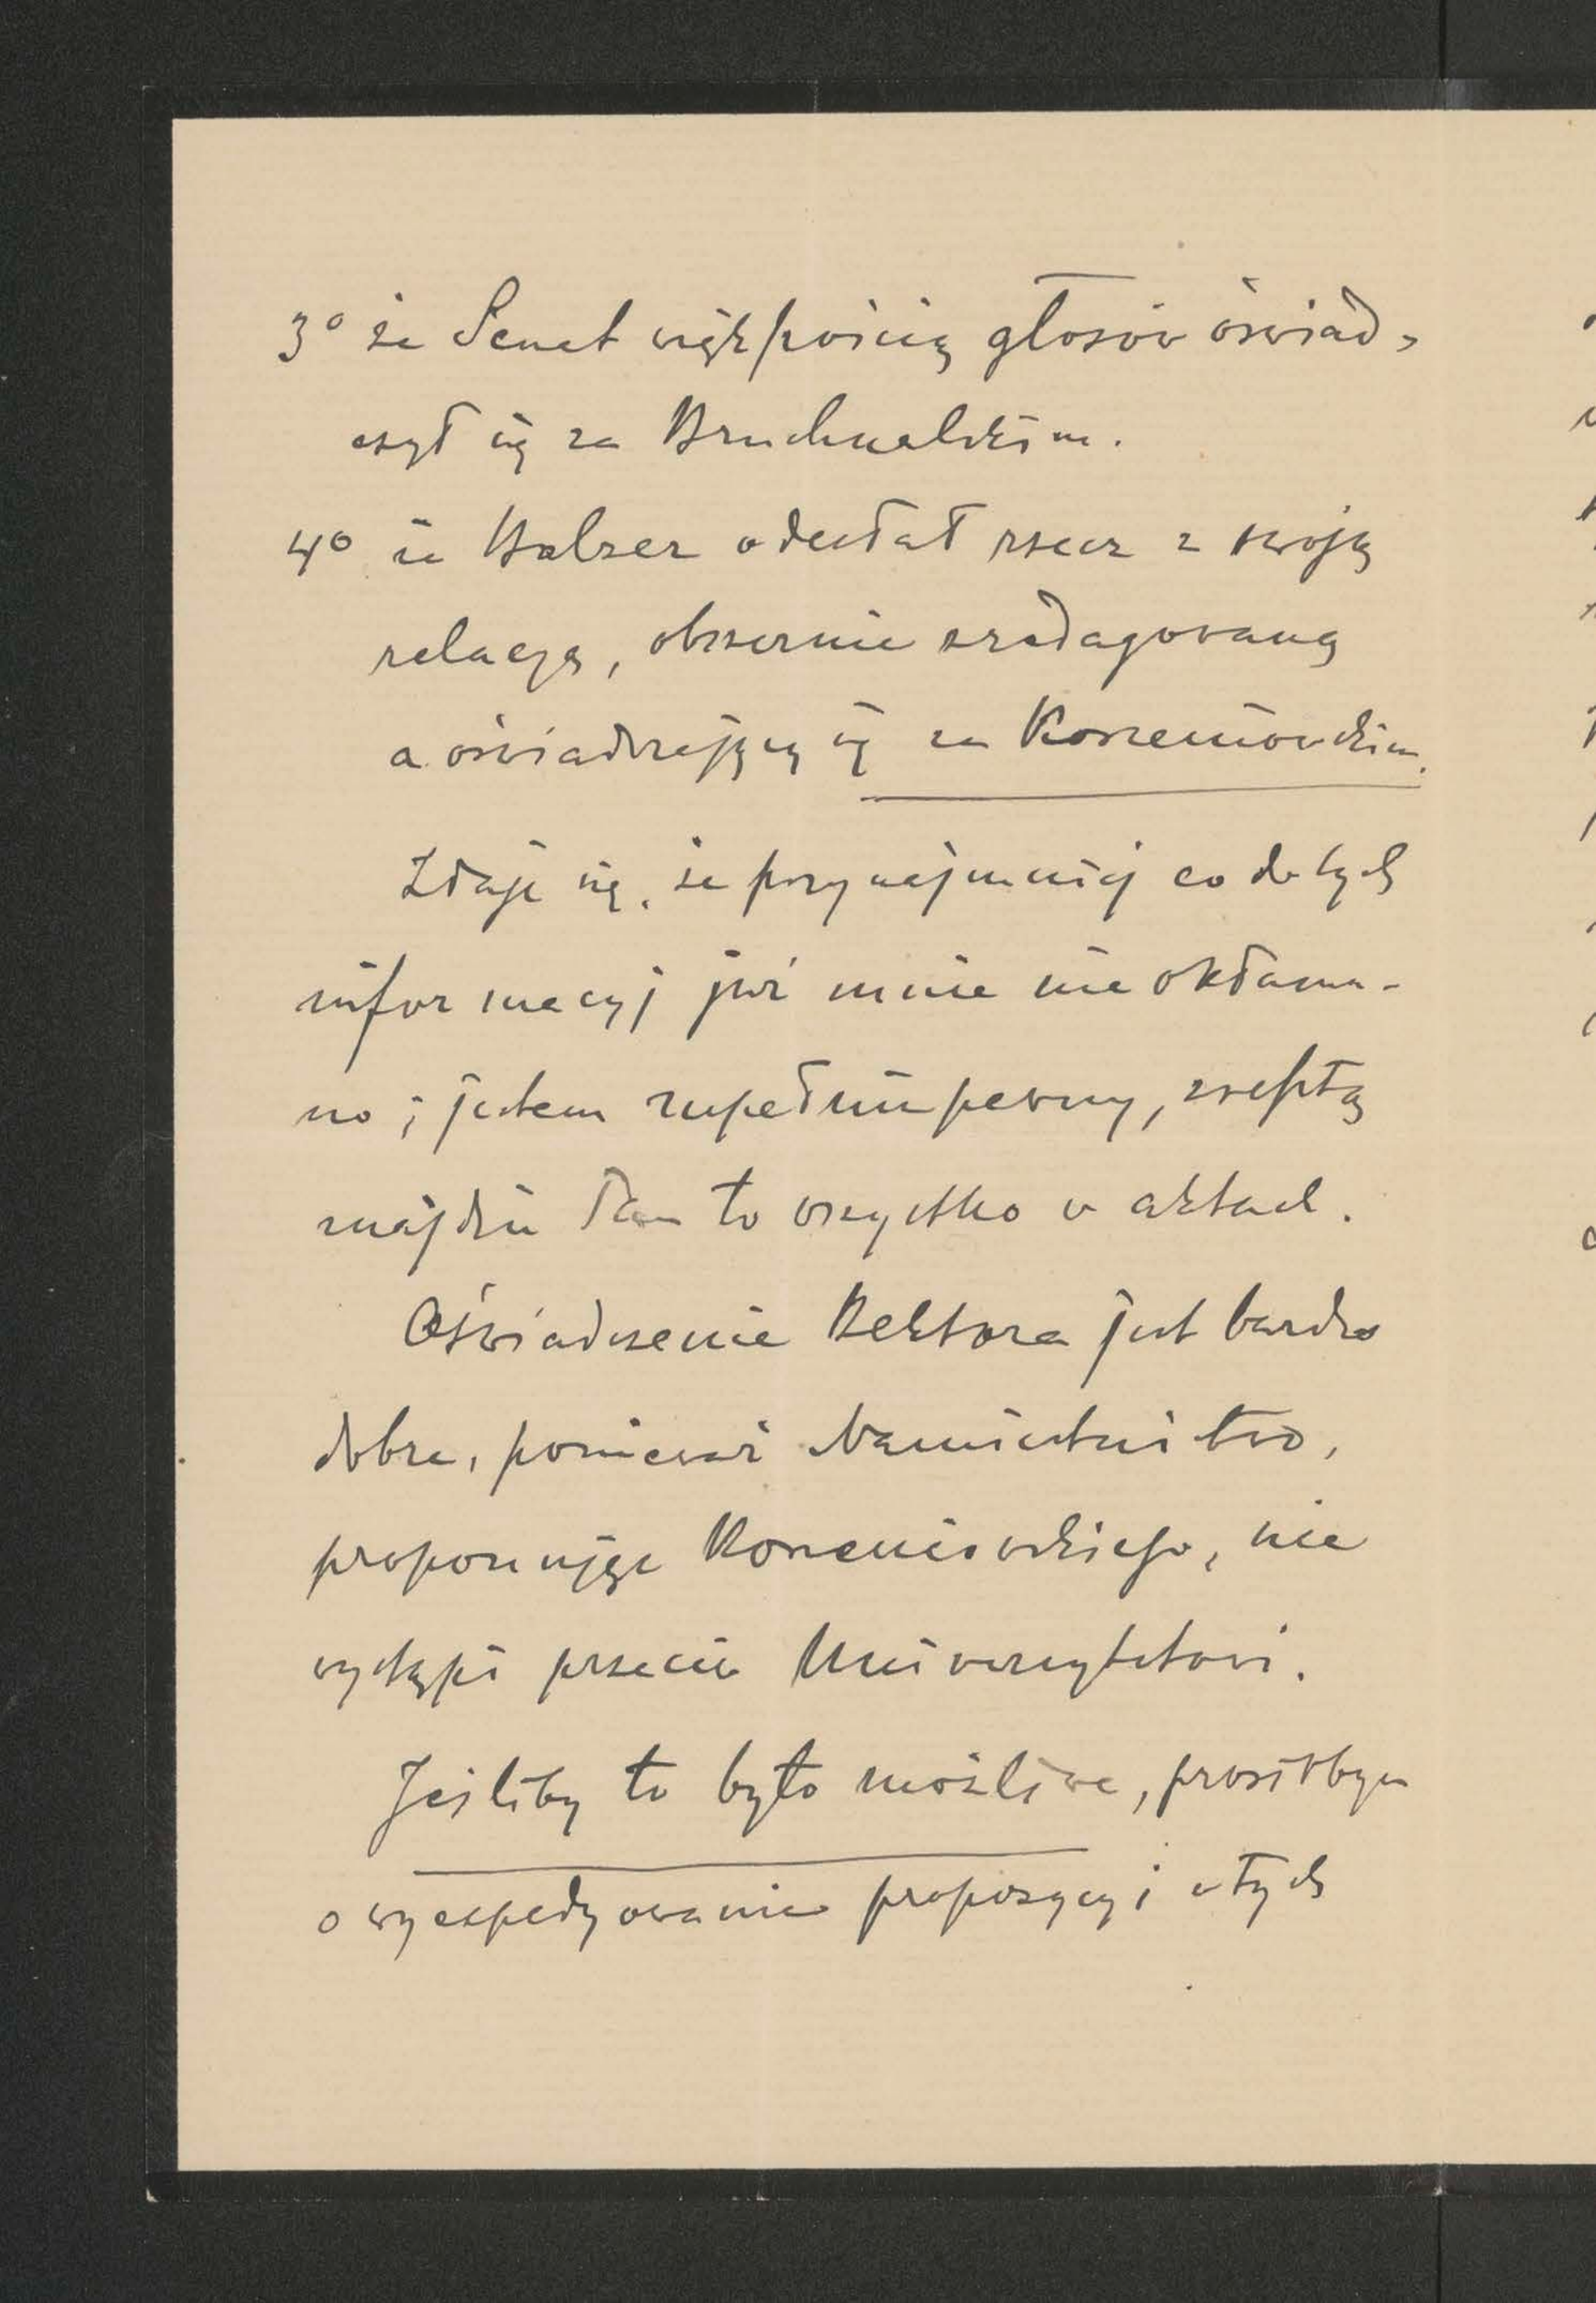 3º że Senat większością głosów oświad-
czył się za Bruchnalskim.
4º że Balzer odesłał rzecz z swoją
relacyą, obszernie zredagowaną
a oświadczającą się za Korzeniowskim.
Zdaje się, że przynajmniej co do tych
informacyj już mnie nie okłama-
no; jestem zupełnie pewny, zresztą
znajdzie Pan to wszystko w aktach.
Oświadczenie Rektora jest bardzo
dobre, ponieważ Namiestnictwo,
proponując Korzeniowskiego, nie
wystąpi przeciw Uniwersytetowi.
Jeśliby to było możliwe, prosiłbym
o wyexpedyowanie propozycyi w tych